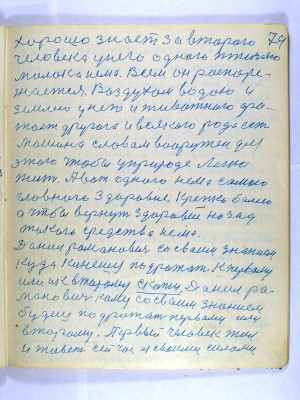 хорошо знает за второго 79
человека у него одного птичего
молока нема. Всем он распоре-
жается. Воздухом водою и
землею у него и животного хра-
тает другога и всякого рода есть
машина словам вооружен для
этого чтобы уприроде легко
жит. А вот одного нема самого
гловного здаровие. Крепко болею
а чтобы вернут здаровие назад
такого средства нема.
Данил раманович со своим знанием
куда кинеш подрожат. К первому
или к второму скажи. Данил ра-
манович кому со своим знанием
будеш подрожат первому или
второму. Первый человек жил
и живет сей час из своими силами